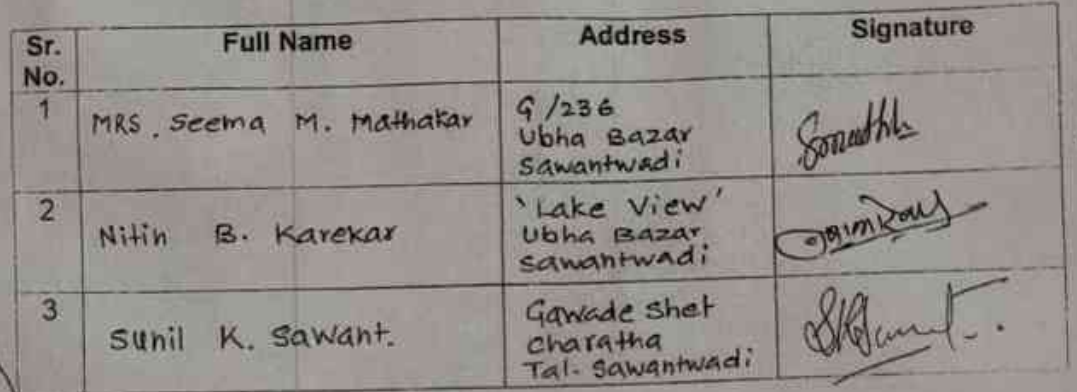 Sr. No. Full Name Address Signature
1 MRS. Seema M. Mathakar G/236
Ubha Bazar
Sawantwadi
2 Nitin B. Karekar 'Lake View'
Ubha Bazar
Sawantwadi
3 Sunil K. Sawant. Gawade Shet
Charatha
Tal. Sawantwadi